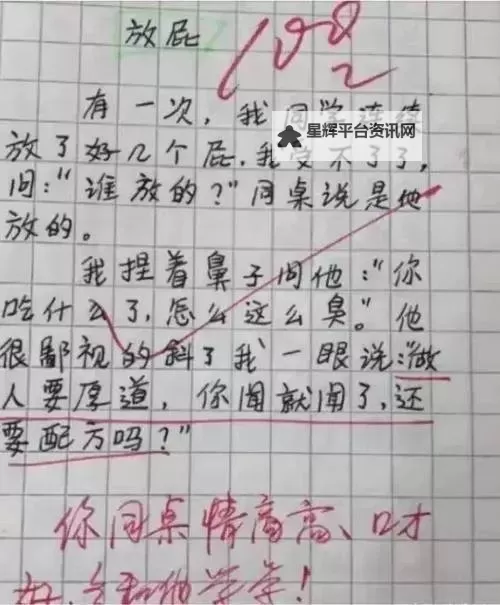 放屁
100
2
有一次，我同学连续
星辉平台资讯网
放了好几个屁，我受不了了，
问：“谁放的？”同桌说是他
放的。
我捏着鼻子问他：“你
吃什么了，怎么这么臭。”他
很鄙视的斜了我一眼说：“做
人要厚道，你闻就闻了，还
要配方吗？”
你同桌情商高、口才
好，多和他学学！